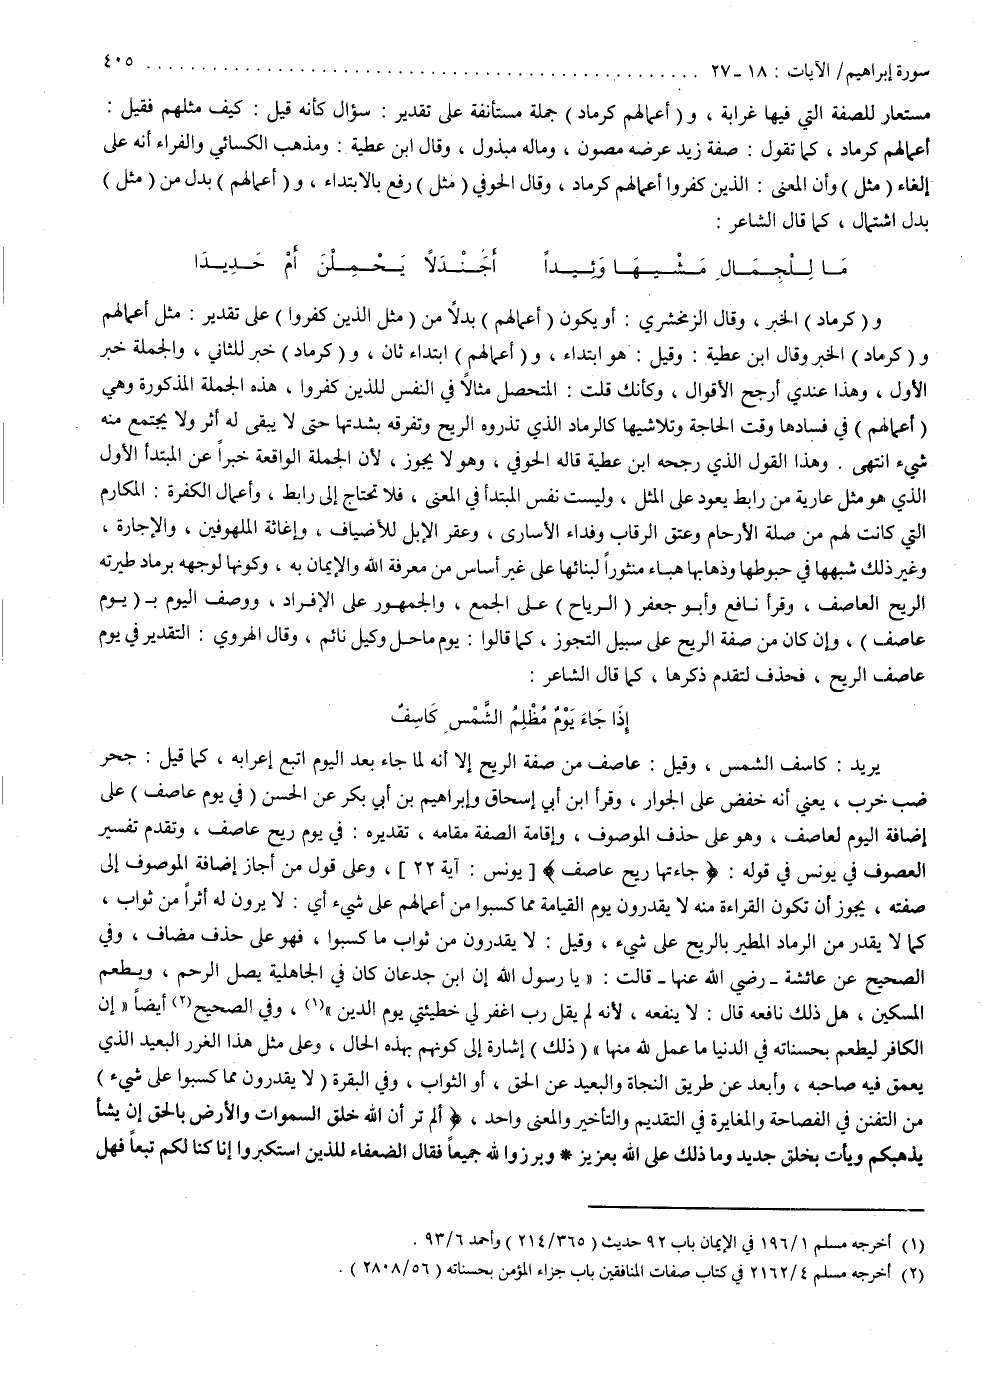 سورة إبراهيم/ الآيات : ١٨ ـ ٢٧ ........................................................ ٤٠٥
مستعار للصفة التي فيها غرابة ، و ( أعمالهم كرماد ) جملة مستأنفة على تقدير : سؤال كأنه قيل : كيف مثلهم فقيل :
أعمالهم كرماد ، كما تقول : صفة زيد عرضه مصون ، وماله مبذول ، وقال ابن عطية : ومذهب الكسائي والفراء أنه على
إلغاء ( مثل ) وأن المعنى : الذين كفروا أعمالهم كرماد ، وقال الحوفي ( مثل ) رفع بالابتداء ، و ( أعمالهم ) بدل من ( مثل )
بدل اشتمال ، كما قال الشاعر :
مَا لِلْجِمَالِ مَشْيِهَا وَئِيداً أَجَنْدَلًا يَحْمِلْنَ أَمْ حَدِيدَا
و ( كرماد ) الخبر ، وقال الزمخشري : أو يكون ( أعمالهم ) بدلًا من ( مثل الذين كفروا ) على تقدير : مثل أعمالهم
و ( كرماد ) الخبر وقال ابن عطية : وقيل : هو ابتداء ، و ( أعمالهم ) ابتداء ثان ، و ( كرماد ) خبر للثاني ، والجملة خبر
الأول ، وهذا عندي أرجح الأقوال ، وكأنك قلت : المتحصل مثالًا في النفس للذين كفروا ، هذه الجملة المذكورة وهي
( أعمالهم ) في فسادها وقت الحاجة وتلاشيها كالرماد الذي تذروه الريح وتفرقه بشدتها حتى لا يبقى له أثر ولا يجتمع منه
شيء انتهى . وهذا القول الذي رجحه ابن عطية قاله الحوفي ، وهو لا يجوز ، لأن الجملة الواقعة خبراً عن المبتدأ الأول
الذي هو مثل عارية من رابط يعود على المثل ، وليست نفس المبتدأ في المعنى ، فلا تحتاج إلى رابط ، وأعمال الكفرة : المكارم
التي كانت لهم من صلة الأرحام وعتق الرقاب وفداء الأسارى ، وعقر الإبل للأضياف ، وإغاثة الملهوفين ، والإجارة ،
وغير ذلك شبهها في حبوطها وذهابها هباء منثوراً لبنائها على غير أساس من معرفة الله والإيمان به ، وكونها لوجهه برماد طيرته
الريح العاصف ، وقرأ نافع وأبو جعفر ( الرياح ) على الجمع ، والجمهور على الإفراد ، ووصف اليوم بـ ( يوم
عاصف ) ، وإن كان من صفة الريح على سبيل التجوز ، كما قالوا : يوم ماحل وكيل نائم ، وقال الهروي : التقدير في يوم
عاصف الريح ، فحذف لتقدم ذكرها ، كما قال الشاعر :
إِذَا جَاءَ يَوْمٌ مُظْلِمُ الشَّمْسِ كَاسِفُ
يريد : كاسف الشمس ، وقيل : عاصف من صفة الريح إلا أنه لما جاء بعد اليوم اتبع إعرابه ، كما قيل : جحر
ضب خرب ، يعني أنه خفض على الجوار ، وقرأ ابن أبي إسحاق وإبراهيم بن أبي بكر عن الحسن ( في يوم عاصف ) على
إضافة اليوم لعاصف ، وهو على حذف الموصوف ، وإقامة الصفة مقامه ، تقديره : في يوم ريح عاصف ، وتقدم تفسير
العصوف في يونس في قوله : ﴿ جاءتها ريح عاصف ﴾ [ يونس : آية ٢٢ ] ، وعلى قول من أجاز إضافة الموصوف إلى
صفته ، يجوز أن تكون القراءة منه لا يقدرون يوم القيامة مما كسبوا من أعمالهم على شيء أي : لا يرون له أثراً من ثواب ،
كما لا يقدر من الرماد المطير بالريح على شيء ، وقيل : لا يقدرون من ثواب ما كسبوا ، فهو على حذف مضاف ، وفي
الصحيح عن عائشة ـ رضي الله عنها ـ قالت : « يا رسول الله إن ابن جدعان كان في الجاهلية يصل الرحم ، ويطعم
المسكين ، هل ذلك نافعه قال : لا ينفعه ، لأنه لم يقل رب اغفر لي خطيئتي يوم الدين »(١) ، وفي الصحيح(٢) أيضاً « إن
الكافر ليطعم بحسناته في الدنيا ما عمل لله منها » ( ذلك ) إشارة إلى كونهم بهذه الحال ، وعلى مثل هذا الغرر البعيد الذي
يعمق فيه صاحبه ، وأبعد عن طريق النجاة والبعيد عن الحق ، أو الثواب ، وفي البقرة ( لا يقدرون مما كسبوا على شيء )
من التفنن في الفصاحة والمغايرة في التقديم والتأخير والمعنى واحد ، ﴿ ألم تر أن الله خلق السموات والأرض بالحق إن يشأ
يذهبكم ويأت بخلق جديد وما ذلك على الله بعزيز * وبرزوا لله جميعاً فقال الضعفاء للذين استكبروا إنا كنا لكم تبعاً فهل
(١) أخرجه مسلم ١٩٦/١ في الإيمان باب ٩٢ حديث ( ٢١٤/٣٦٥ ) وأحمد ٩٣/٦ .
(٢) أخرجه مسلم ٢١٦٢/٤ في كتاب صفات المنافقين باب جزاء المؤمن بحسناته ( ٢٨٠٨/٥٦ ) .